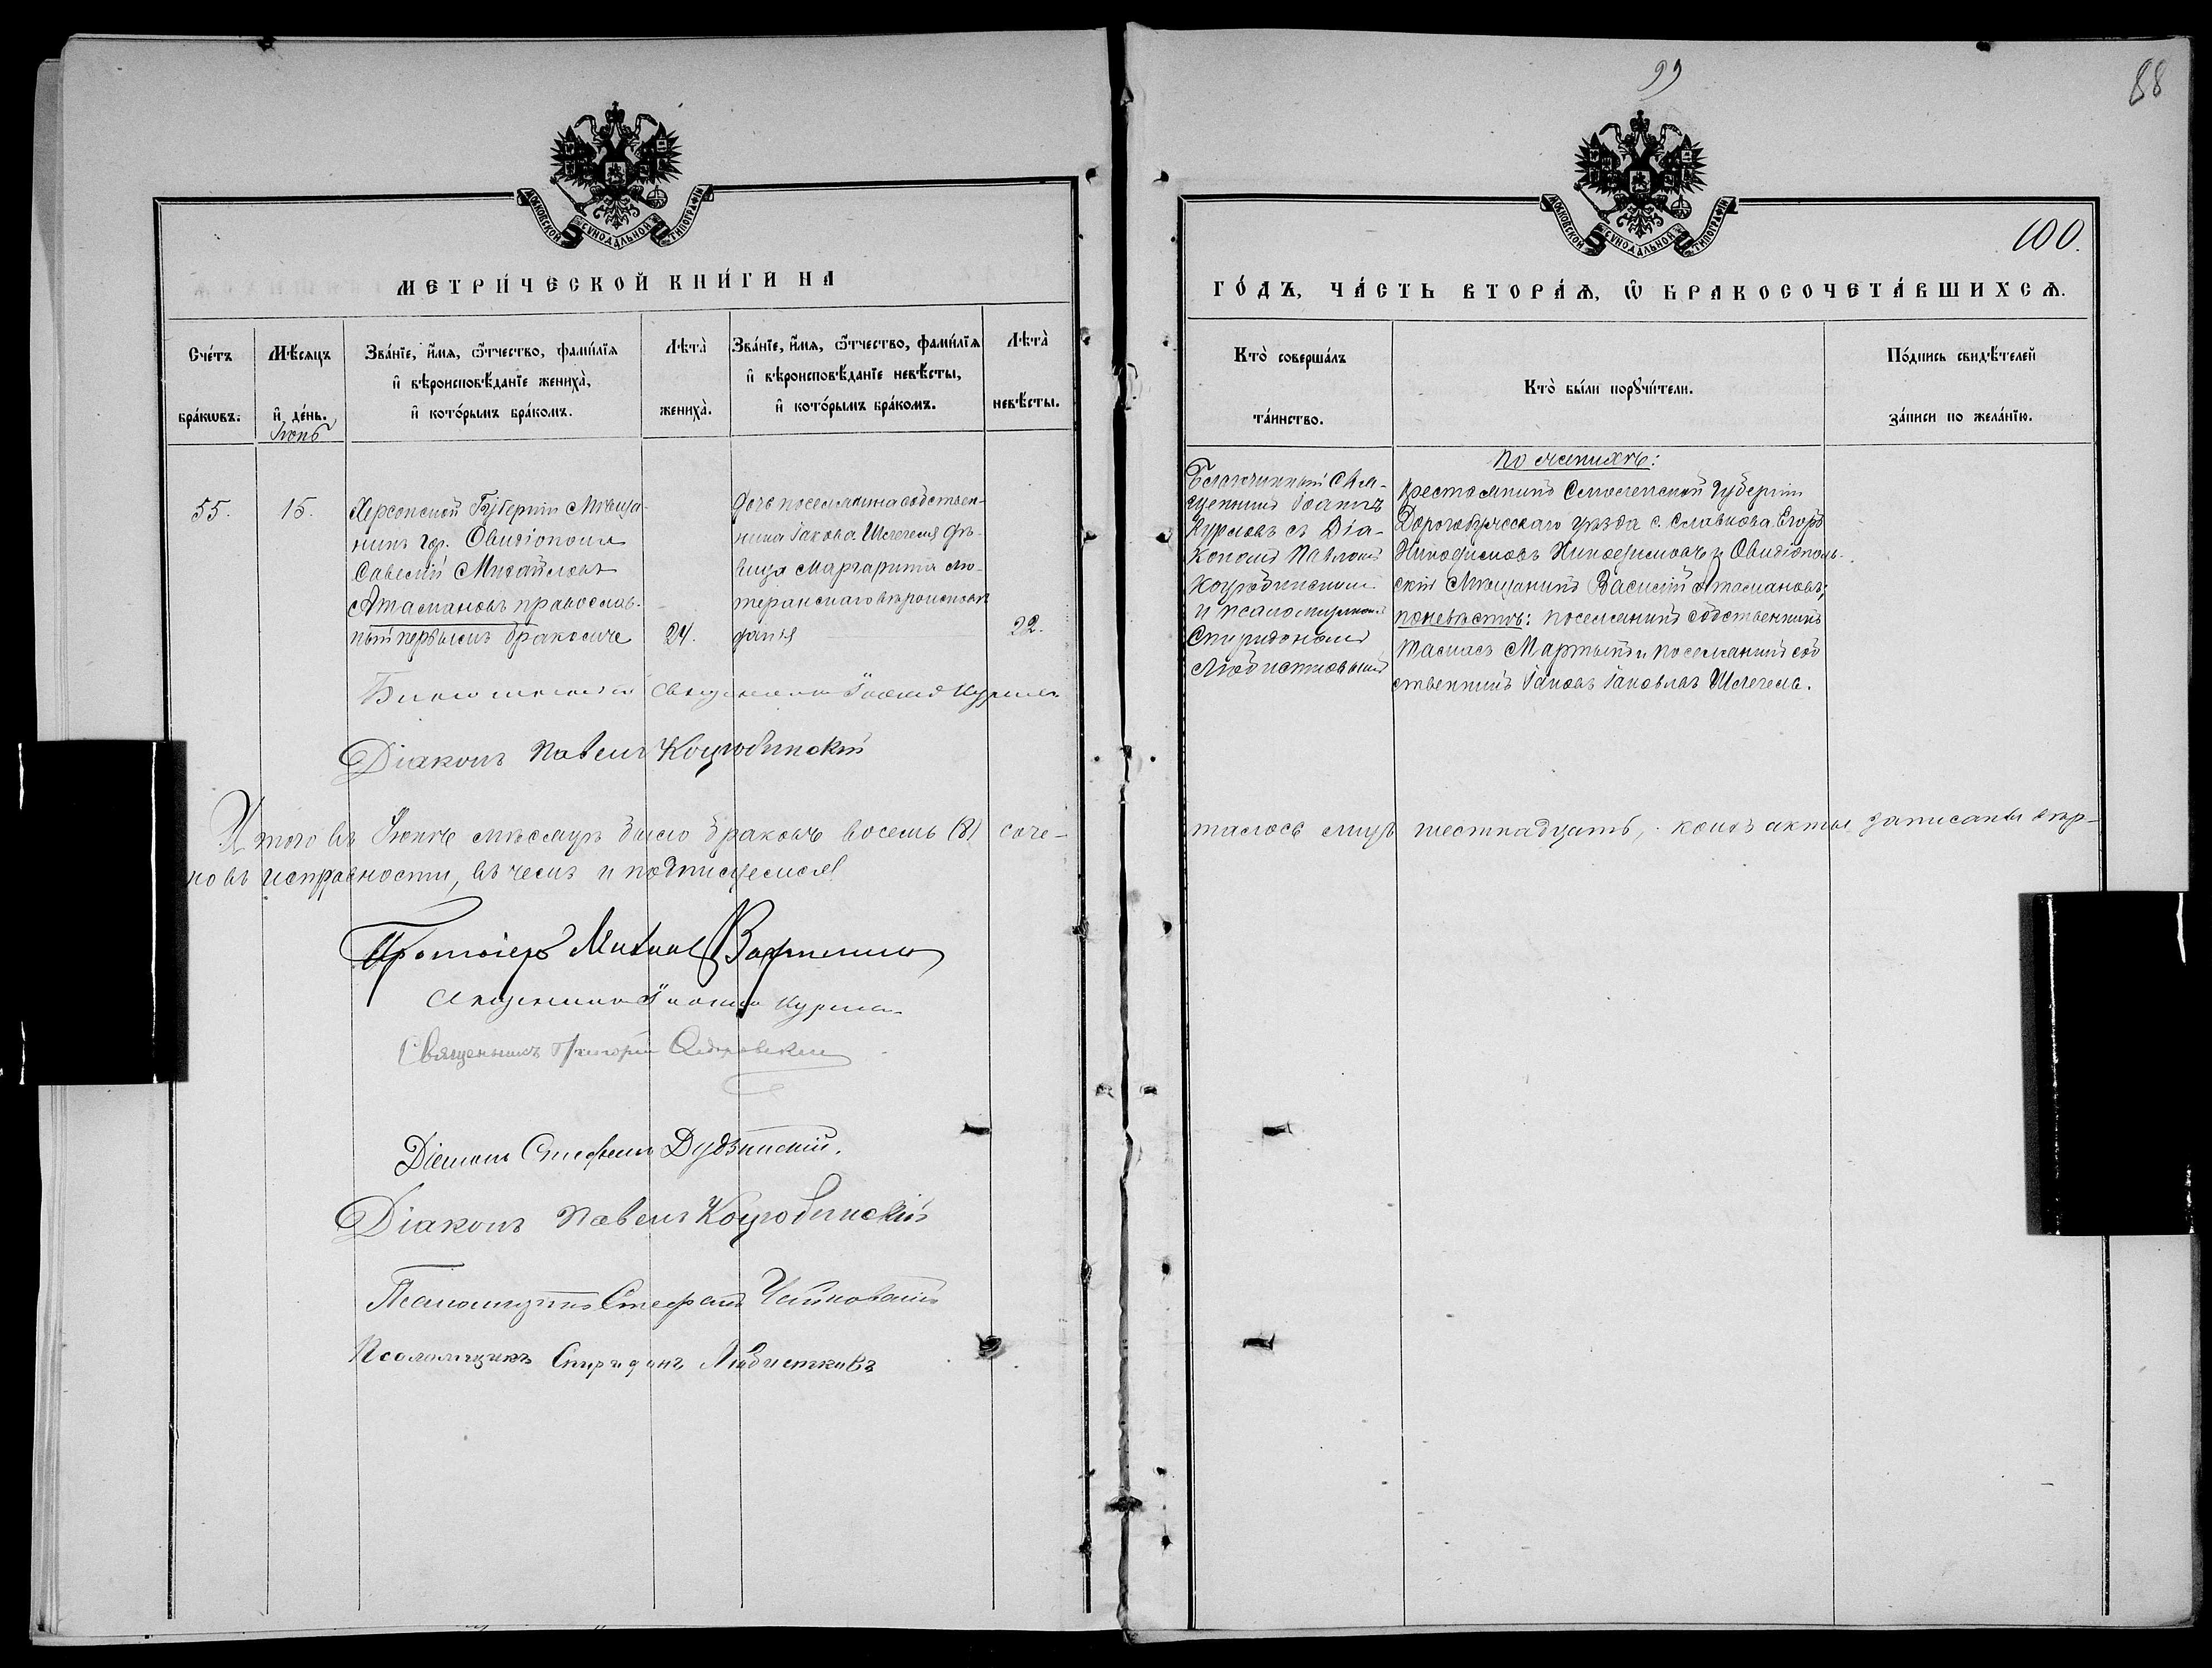 99
88
100.
МОСКОВСКОЙ СѴНОДАЛЬНОЙ ТИПОГРАФІИ
МОСКОВСКОЙ СѴНОДАЛЬНОЙ ТИПОГРАФІИ
МЕТРИ́ЧЕСКОЙ КНИ́ГИ НА
ГО́ДЪ, ЧА́СТЬ ВТОРА́Ѧ, Ѽ БРАКОСОЧЕТА́ВШИХСѦ.
Сче́тъ бра́кѡвъ.
Мѣ́сяцъ и҆ де́нь.
Зва́нїе, и҆́мѧ, ѻ҆́тчество, фами́лїѧ
и҆ вѣроисповѣ́данїе жениха̀,
и҆ кото́рымъ бра́комъ.
Лѣта̀ жениха̀.
Зва́нїе, и҆́мѧ, ѻ҆́тчество, фами́лїѧ
и҆ вѣроисповѣ́данїе невѣ́сты,
и҆ кото́рымъ бра́комъ.
Лѣта̀ невѣ́сты.
Кто̀ соверша́лъ та́инство.
Кто̀ бы́ли порꙋчи́тели.
По́дпись свидѣ́телей за́писи по жела́нїю.
Іюнь
55.
15.
Херсонской Губерніи Мѣща-
нинъ гор. Овидіополя
Савелій Михайловъ
Атамановъ православ-
ный первымъ бракомъ
24.
Дочь поселянина собствен-
ника Іакова Шлегеля дѣ-
вица Маргарита лю-
теранскаго вѣроисповѣ
данія
22.
Благочинный Свя-
щенникъ Іоаннъ
Курловъ съ Діа-
кономъ Павломъ
Коцюбинскимъ
и псаломщикомъ
Спиридономъ
Любистковымъ
По женихѣ:
крестьянинъ Смоленской губерніи
Дорогобужскаго уѣзда с. Славкова Егоръ
Никодимовъ и Овидіополь-
скій мѣщанинъ Василій Атамановъ;
по невѣстѣ: поселянинъ собственникъ
Мартынъ и поселянинъ соб
ственникъ Іаковъ Іаковлевъ Шлегель.
Благочинный Священникъ Іоаннъ Курловъ
Діаконъ Павелъ Коцюбинскій
Итого въ Іюнѣ мѣсяцѣ было браковъ восемь (8) соче-
талось лицъ шестнадцать, коихъ акты записаны вѣр-
но въ исправности, въ чемъ и подписуемся
Протоіерей Михаилъ
Священникъ Іоаннъ Курловъ
Священникъ Григорій
Діаконъ Стефанъ Дудзинскій.
Діаконъ Павелъ Коцюбинскій
Псаломщикъ Стефанъ Чайковскій
Псаломщикъ Спиридонъ Любистковъ